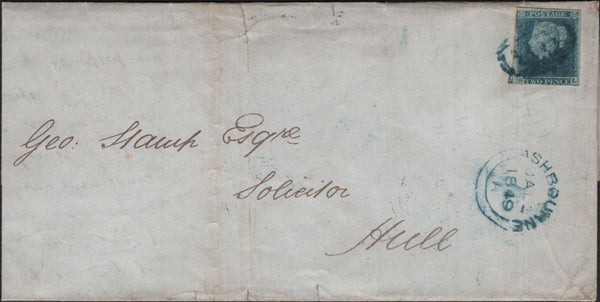 POSTAGE
TWO PENCE
Geo. Stamp Esqre
Solicitor
Hull
ASHBOURNE
1849